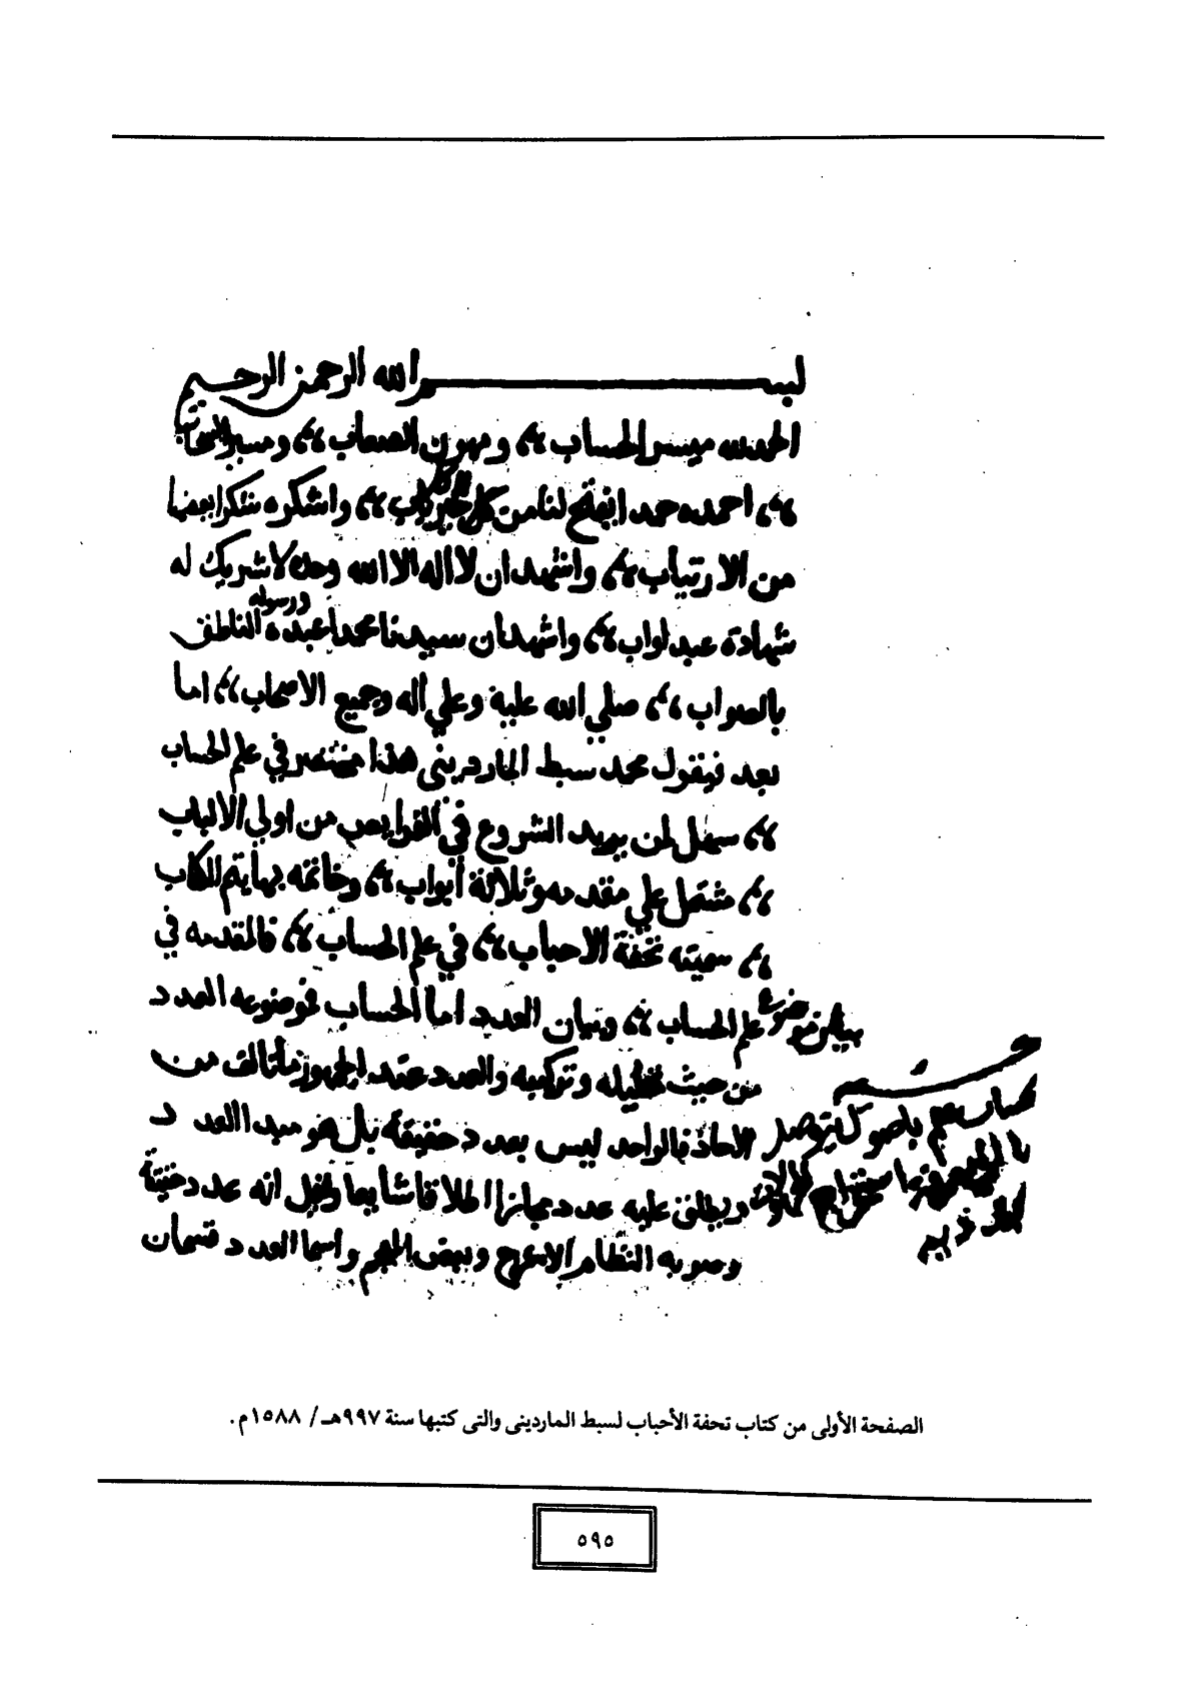 بسم الله الرحمن الرحيم
الحمد لله ميسر الحساب ،، ومهون الصعاب ،، ومسبب الاسباب
،، احمده حمدا يفتح لنا من كل خير باب ،، واشكره شكرا
من الارتياب ،، واشهد ان لا اله الا الله وحده لا شريك له
شهادة عبد اواب ،، واشهد ان سيدنا محمدا عبده ورسوله الناطق
بالصواب ،، صلي الله علية وعلي آله وجميع الاصحاب ،، اما
بعد فيقول محمد سبط المارديني هذا مختصر في علم الحساب
،، سهل لمن يريد الشروع في الفرايض من اولي الالباب
،، مشتمل علي مقدمه وثلاثة ابواب ،، وخاتمه بها يتم الكتاب
،، سميته تحفة الاحباب ،، في علم الحساب ،، فالمقدمه في
بيان موضوع علم الحساب ،، وبيان العدد اما الحساب فموضوعه العدد
من حيث تحليله وتركيبه والعدد عند الجمهور ما تالف من
الاحاد فالواحد ليس بعدد حقيقة بل هو مبدا العدد
ويطلق عليه عدد مجازا اطلاقا شايعا وقيل انه عدد حقيقة
وصوبه النظام الاعرج وبعض العجم واسما العدد قسمان
الصفحة الأولى من كتاب تحفة الأحباب لسبط الماردينى والتى كتبها سنة ٩٩٧هـ/ ١٥٨٨م.
٥٩٥